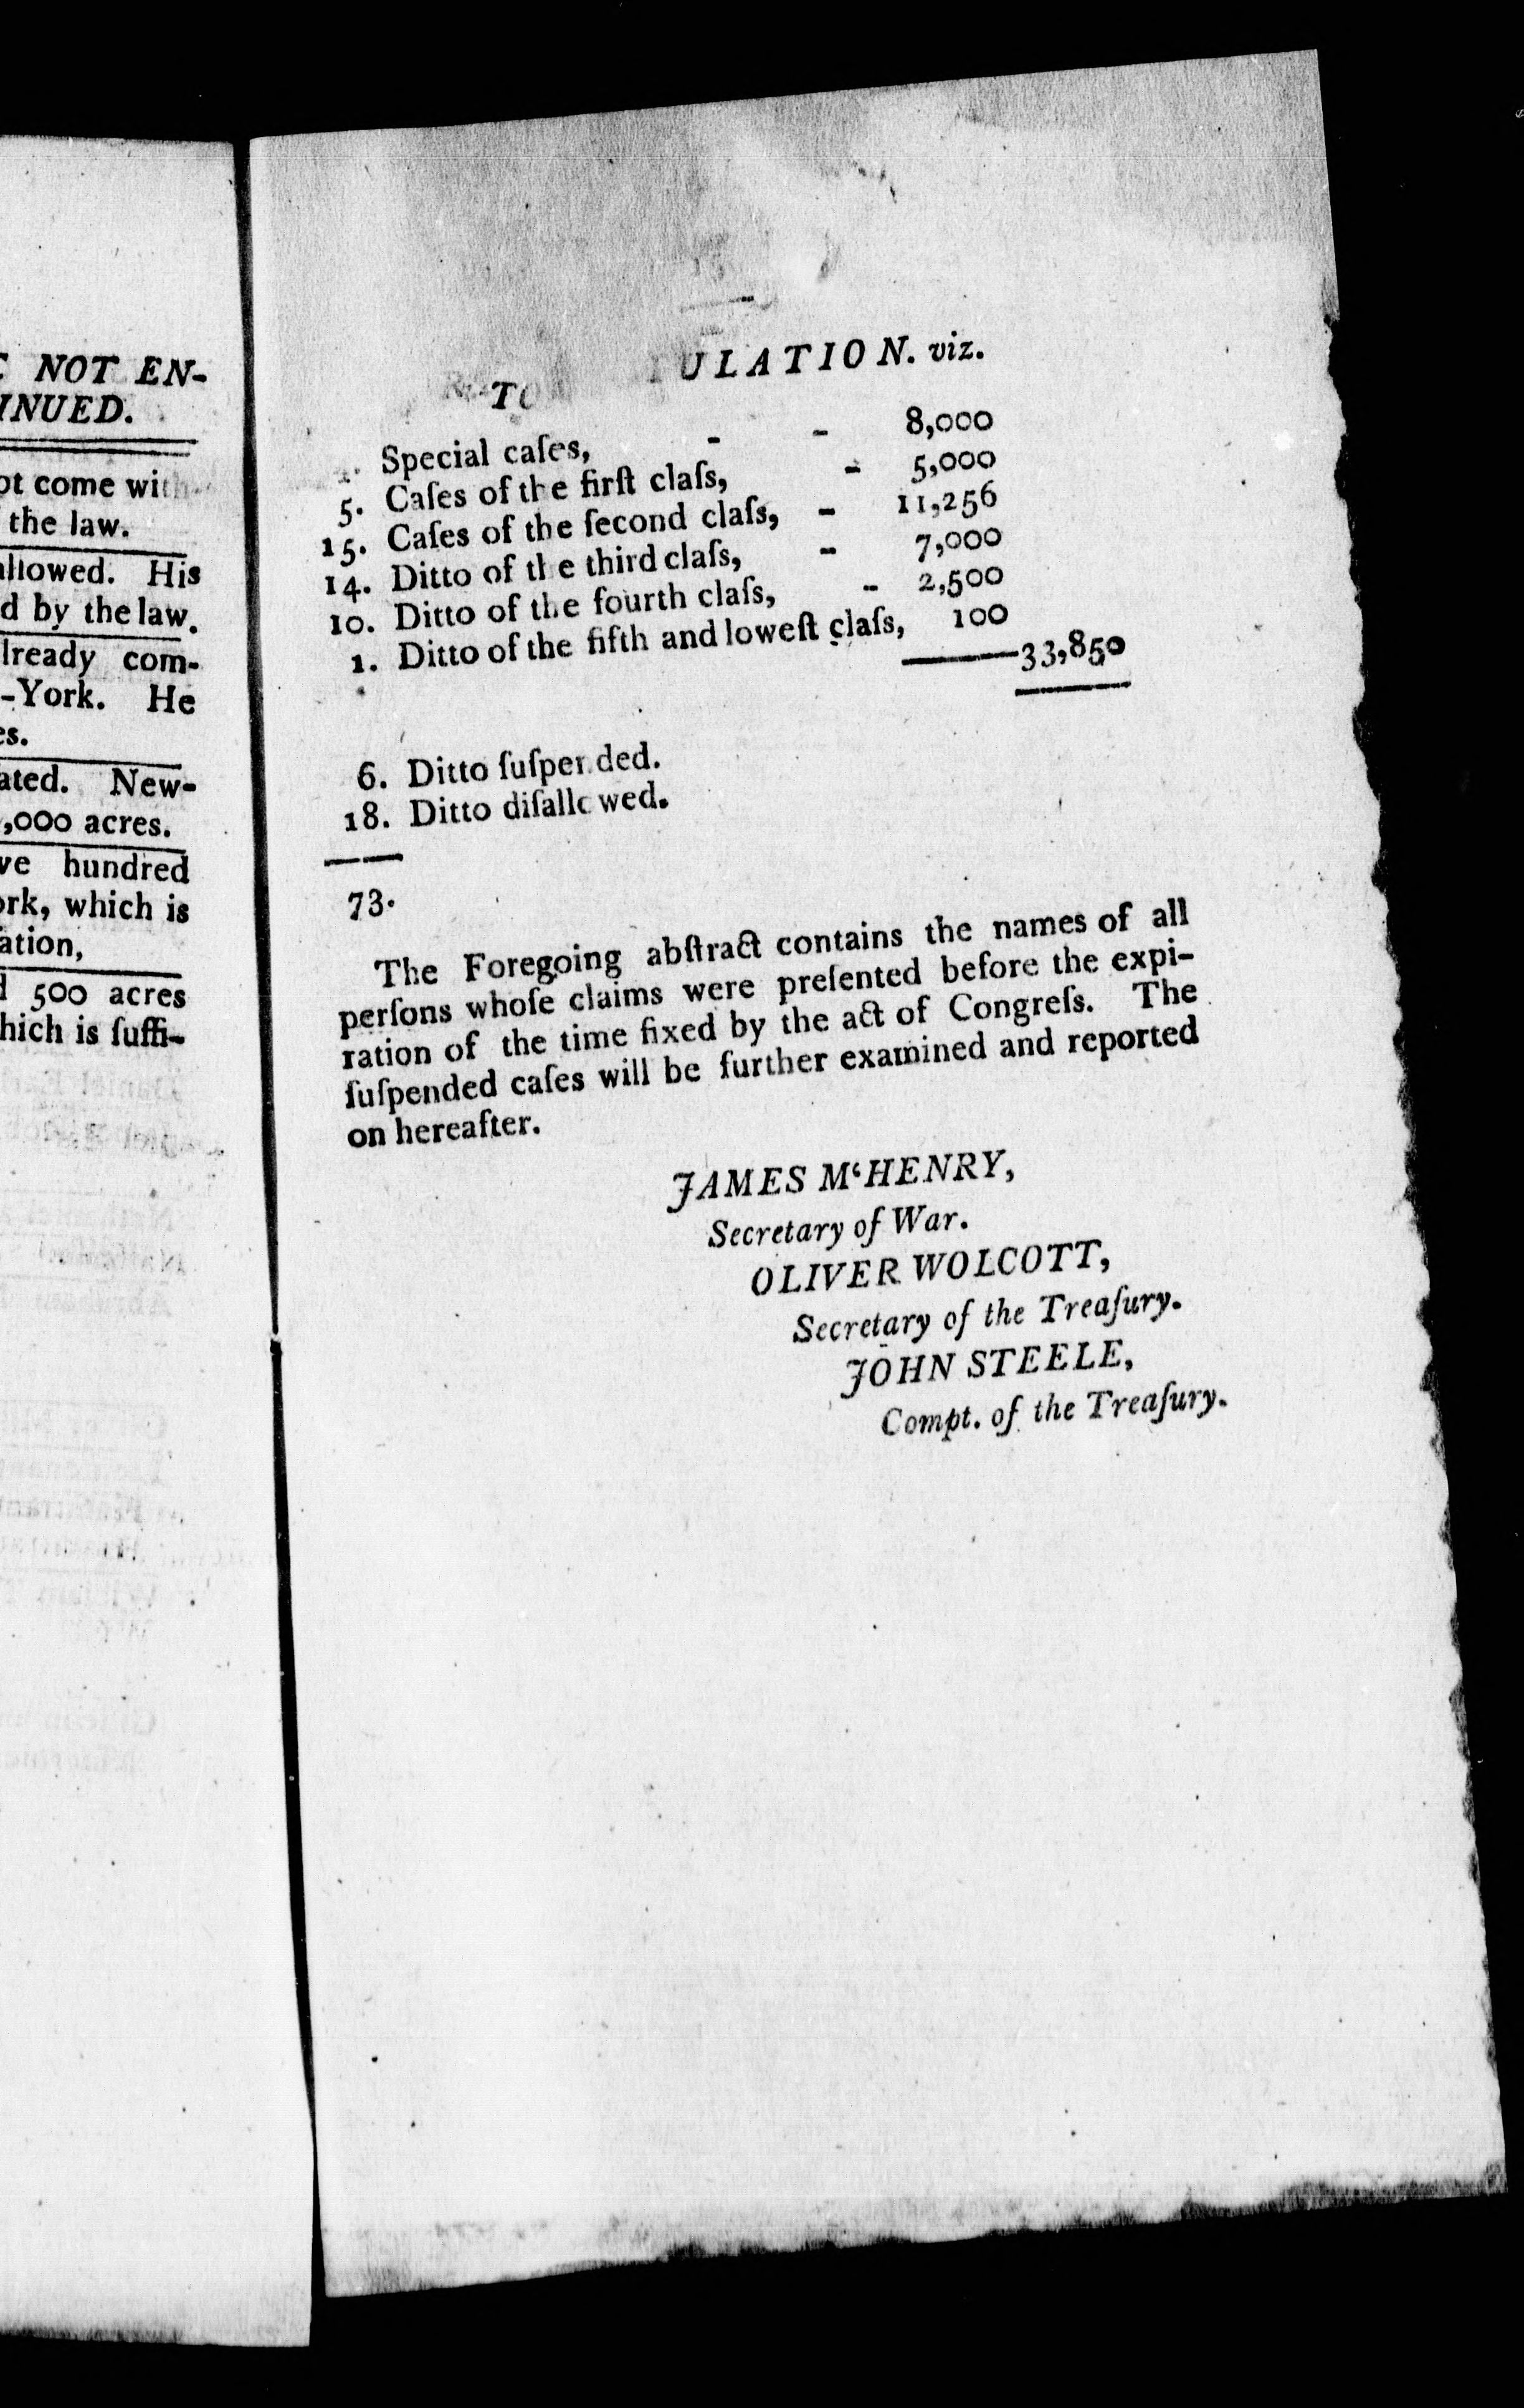 NOT EN-
INUED.
ot come with
the law.
allowed. His
d by the law.
lready com-
-York. He
es.
ated. New-
,000 acres.
ve hundred
ork, which is
ation,
d 500 acres
hich is ſuffi-
TO ULATION. viz.
Special caſes, - - 8,000
5. Caſes of the firſt claſs, - 5,000
15. Caſes of the ſecond claſs, - 11,256
14. Ditto of the third claſs, - 7,000
10. Ditto of the fourth claſs, - 2,500
1. Ditto of the fifth and loweſt claſs, 100
33,850
6. Ditto ſuſpended.
18. Ditto diſallowed.
73.
The Foregoing abſtract contains the names of all
perſons whoſe claims were preſented before the expi-
ration of the time fixed by the act of Congreſs. The
ſuſpended caſes will be further examined and reported
on hereafter.
JAMES M‘HENRY,
Secretary of War.
OLIVER WOLCOTT,
Secretary of the Treaſury.
JOHN STEELE,
Compt. of the Treaſury.